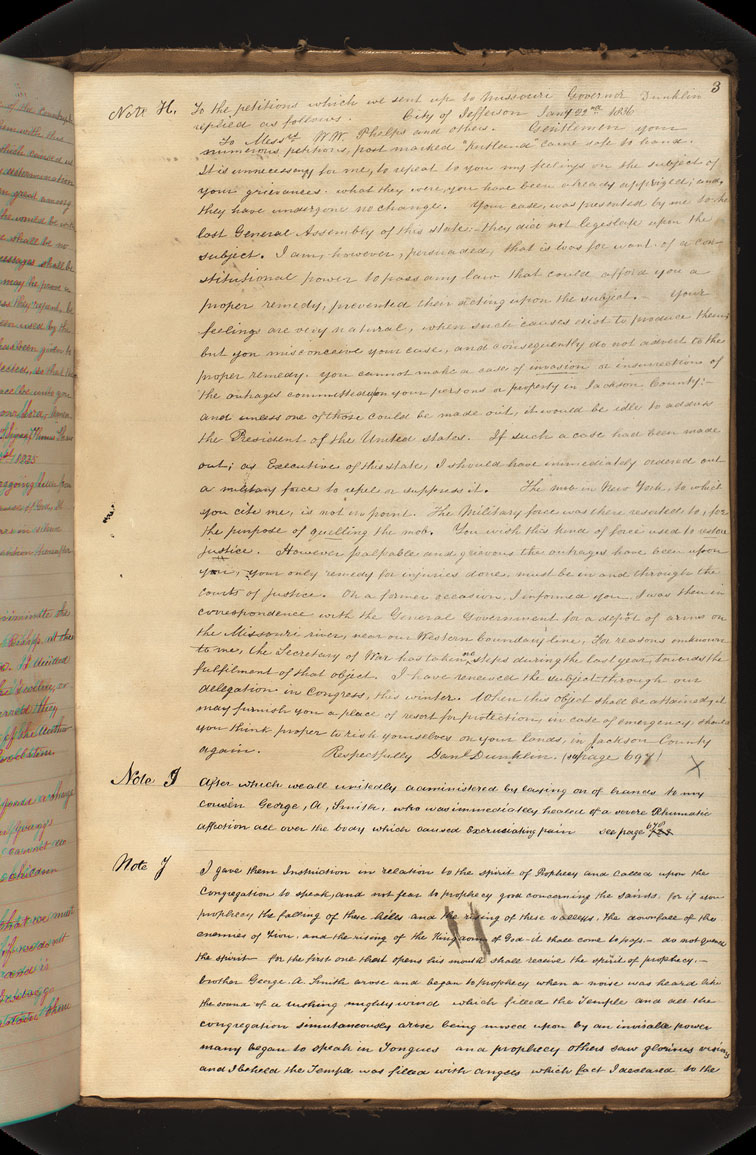 3
Note H. To the petitions which we sent up to Missouri Governor Dunklin
replied as follows. City of Jefferson Jany 22nd 1836
To Messrs W. W. Phelps and others. Gentlemen your
numerous petitions, post marked "Kirtland" came safe to hand.
It is unnecessary for me, to repeat to you my feelings on the subject of
your grievances. what they were, you have been already apprized; and,
they have undergone no change. Your case, was presented by me to the
last General Assembly of this state. they did not legislate upon the
subject. I am, however, persuaded, that it was for want of a con-
stitutional power to pass any law that could afford you a
proper remedy, prevented their acting upon the subject. Your
feelings are very natural, when such causes exist to produce them;
but you misconceive your case, and consequently do not advert to the
proper remedy. you cannot make a case of invasion or insurrection of
the outrages committed upon your persons or property in Jackson County:
and unless one of those could be made out, it would be idle to address
the President of the United states. If such a case had been made
out; as Executive of this state, I should have immediately ordered out
a military force to repel or suppress it. The mob in New York, to which
you cite me, is not in point. The Military force was there resorted to, for
the purpose of quelling the mob. You wish this kind of force used to restore
justice. However palpable and grievous the outrages have been upon
you, your only remedy for injuries done, must be in and through the
courts of justice. On a former occasion, I informed you, I was then in
correspondence with the General Government for a depot of arms on
the Missouri river, near our Western boundary line, For reasons unknown
to me, the Secretary of War has taken no steps during the last year, towards the
fulfilment of that object. I have renewed the subject through our
delegation in Congress, this winter. When this object shall be attained, it
may furnish you a place of resort for protection, in case of emergency, should
you think proper to risk yourselves on your lands, in Jackson County
again. Respectfully Danl Dunklin. page 697) X
Note I After which we all unitedly administered by laying on of hands to my
cousin George, A, Smith, who was immediately healed of a severe Rhumatic
affection all over the body which caused Excruciating pain see page
Note J I gave them Instruction in relation to the spirit of Prophecy and called upon the
Congregation to speak, and not fear to prophecy good concerning the saints, for if you
prophecy the falling of these hills and the rising of these valleys, the downfall of the
enemies of Zion, and the rising of the Kingdom of God it shall come to pass. do not quench
the spirit for the first one that opens his mouth shall receive the spirit of prophecy.
brother George. A. Smith arose and began to prophecy when a noise was heard like
the sound of a rushing mighty wind which filled the Temple and all the
congregation simutaneously arose being moved upon by an invisable power
many began to speak in Tongues and prophecy others saw glorious visions
and I beheld the Temple was filled with angels which fact I declared to the